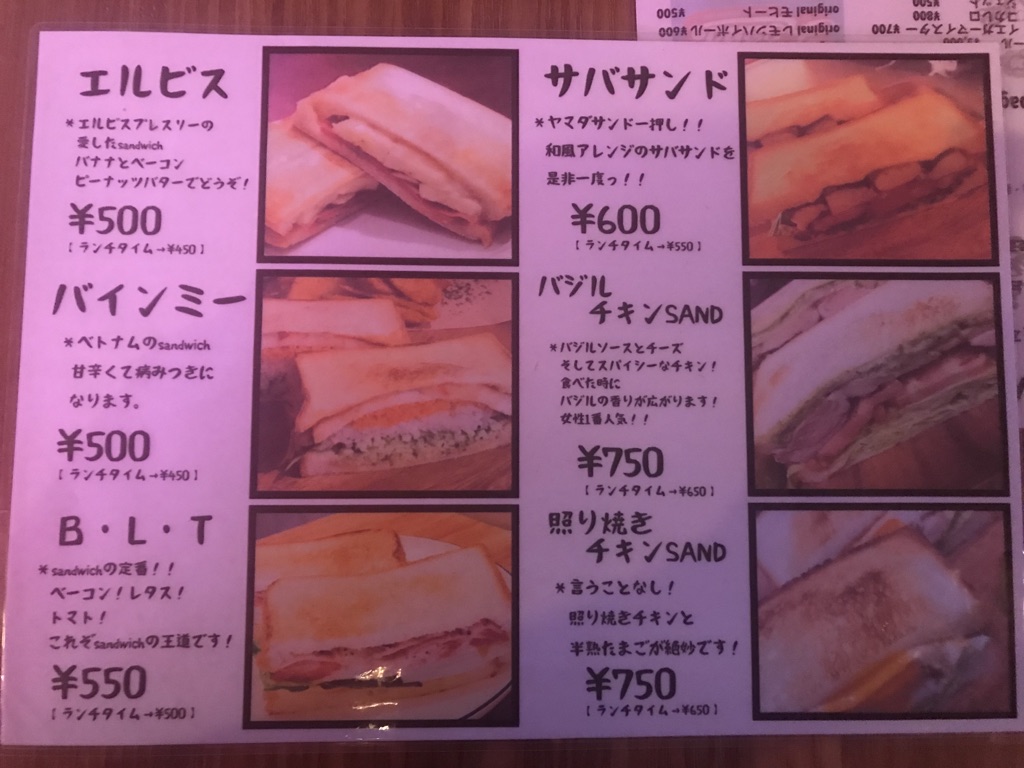 エルビス
*エルビスプレスリーの
愛したsandwich
バナナとベーコン
ピーナッツバターでどうぞ!
¥500
【ランチタイム→¥450】
バインミー
*ベトナムのsandwich
甘辛くて病みつきに
なります。
¥500
【ランチタイム→¥450】
B・L・T
*sandwichの定番!!
ベーコン!レタス!
トマト!
これぞsandwichの王道です!
¥550
【ランチタイム→¥500】
サバサンド
*ヤマダサンド一押し!!
和風アレンジのサバサンドを
是非一度っ!!
¥600
【ランチタイム→¥550】
バジル
チキンSAND
*バジルソースとチーズ
そしてスパイシーなチキン!
食べた時に
バジルの香りが広がります!
女性1番人気!!
¥750
【ランチタイム→¥650】
照り焼き
チキンSAND
*言うことなし!
照り焼きチキンと
半熟たまごが絶妙です!
¥750
【ランチタイム→¥650】
original レモンハイボール ¥600
original モヒート ¥500
イエガーマイスター ¥700
コカレロ ¥500